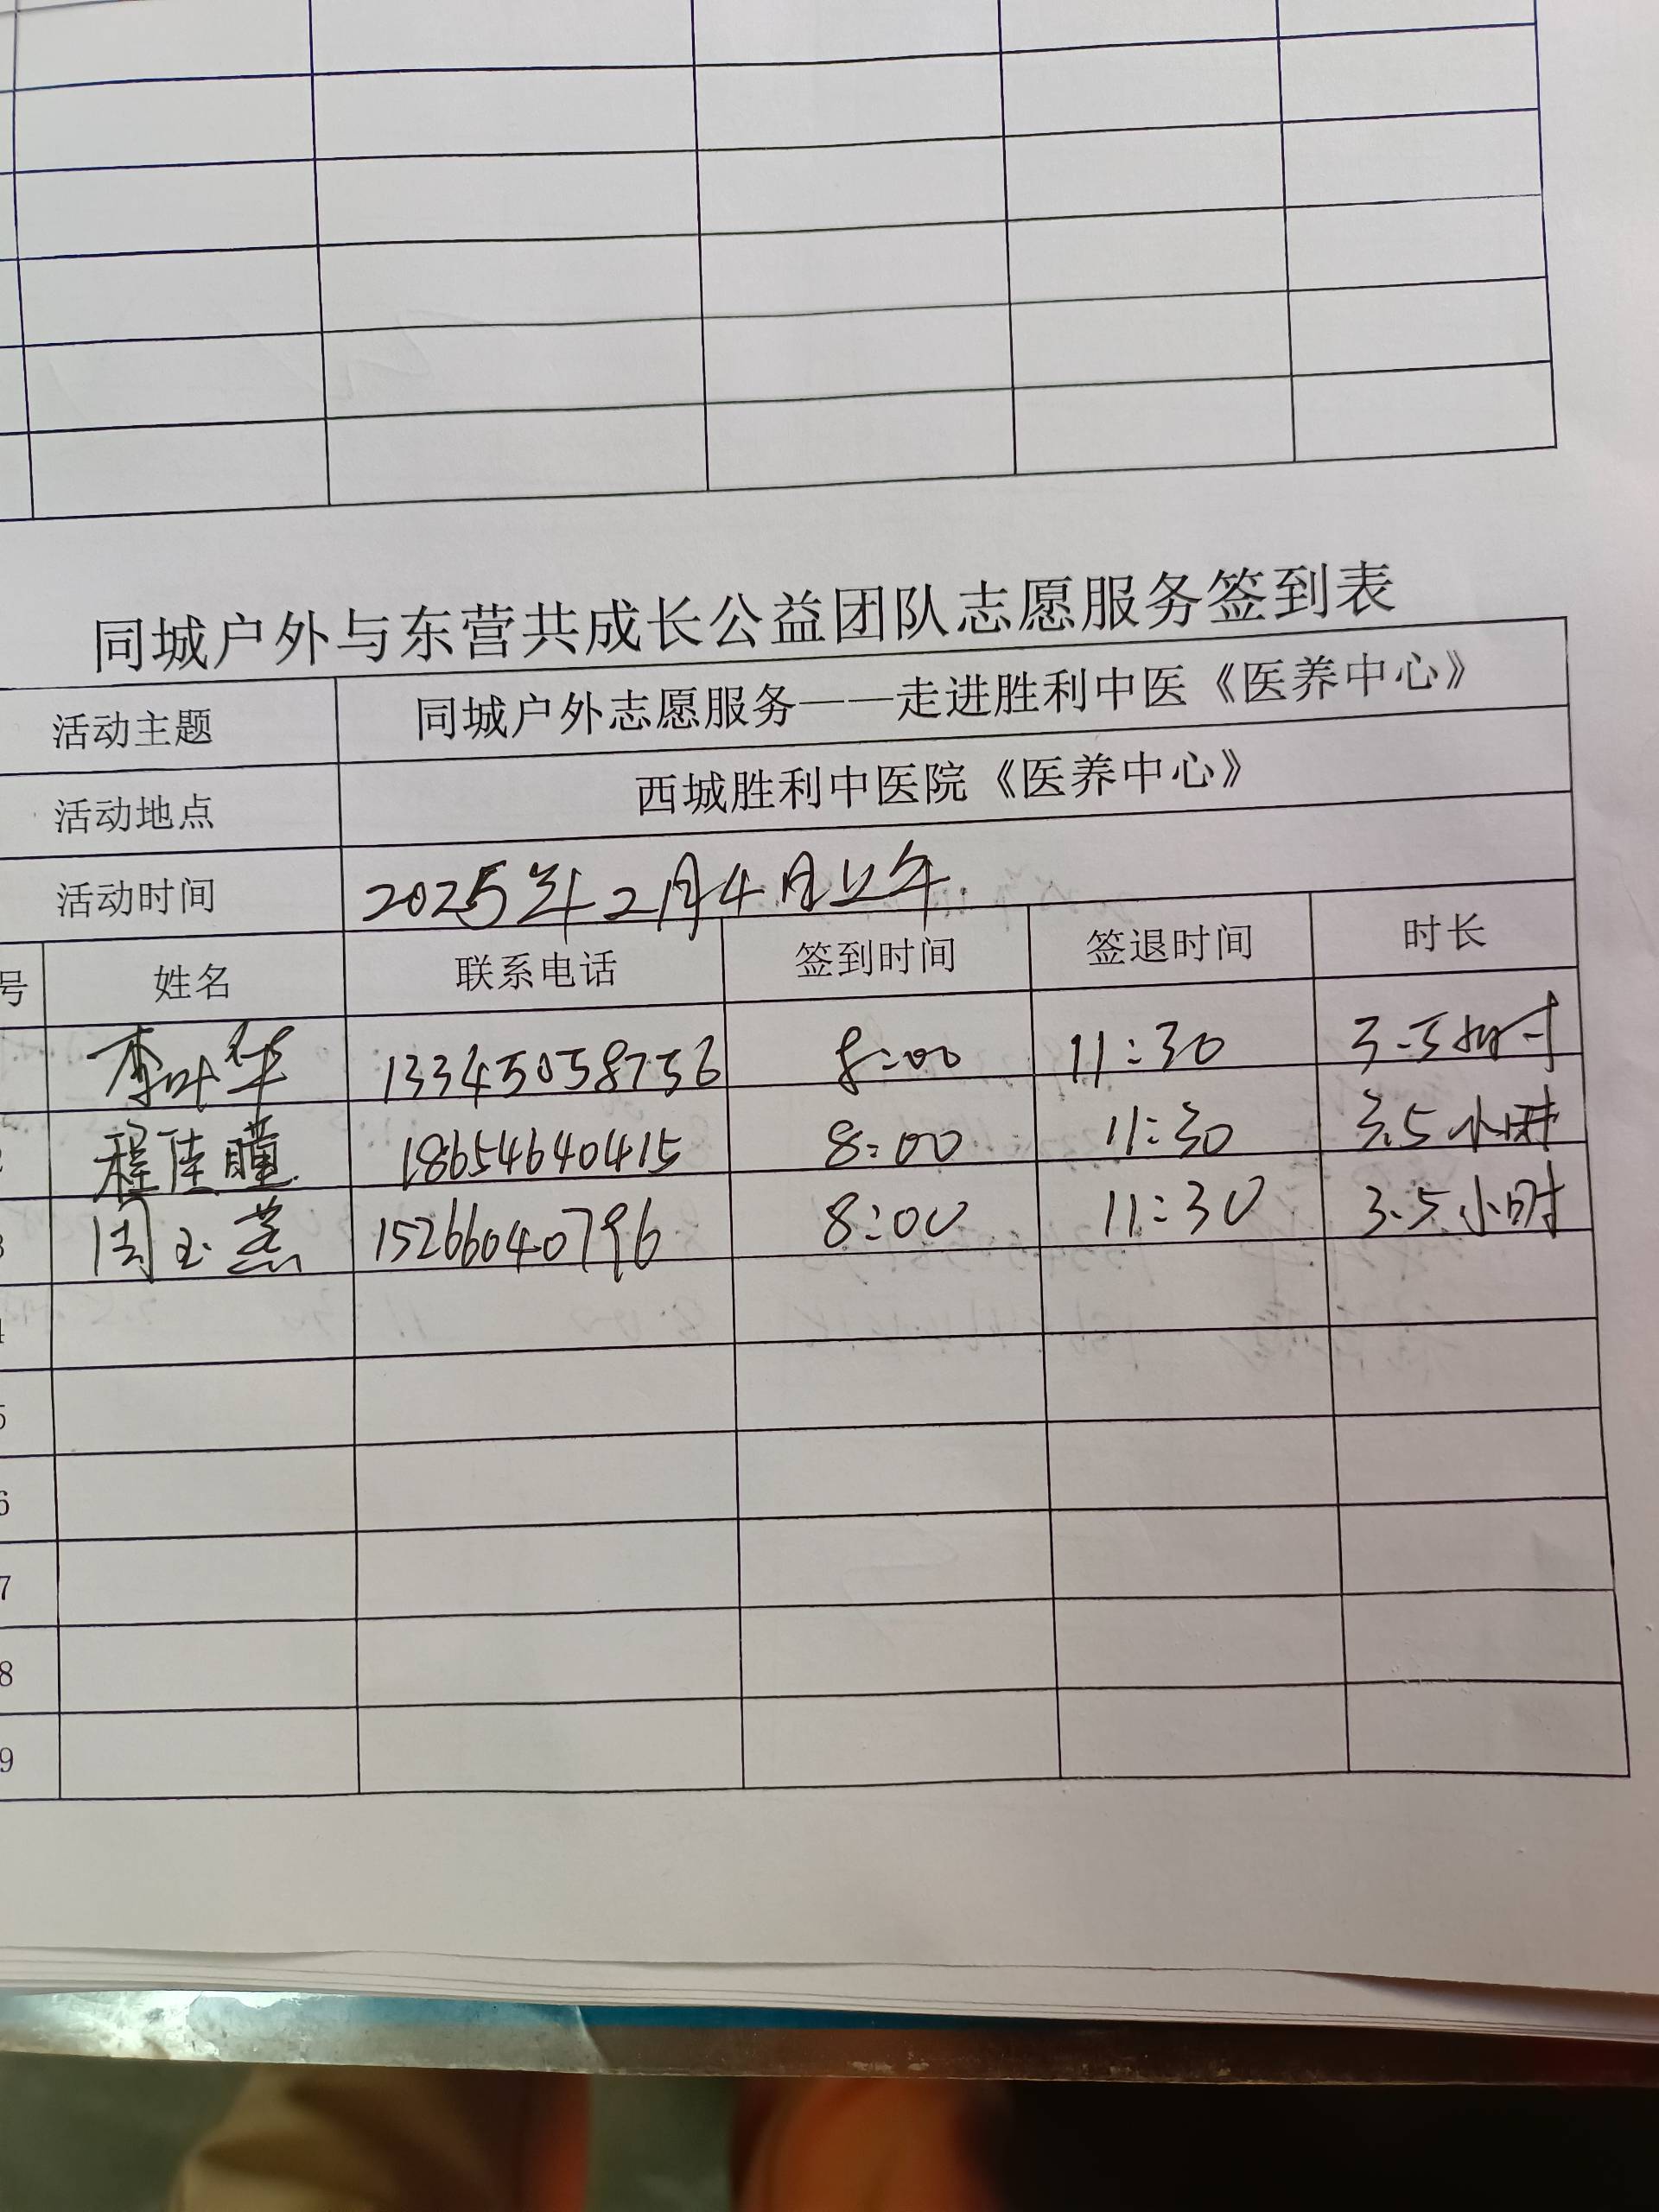 同城户外与东营共成长公益团队志愿服务签到表
活动主题 同城户外志愿服务——走进胜利中医《医养中心》
活动地点 西城胜利中医院《医养中心》
活动时间 2025年2月4日上午
号 姓名 联系电话 签到时间 签退时间 时长
李叶华 13345058756 8:00 11:30 3.5小时
2 程佳瞳 18654640415 8:00 11:30 3.5小时
3 周玉燕 15266040796 8:00 11:30 3.5小时
4
5
6
7
8
9